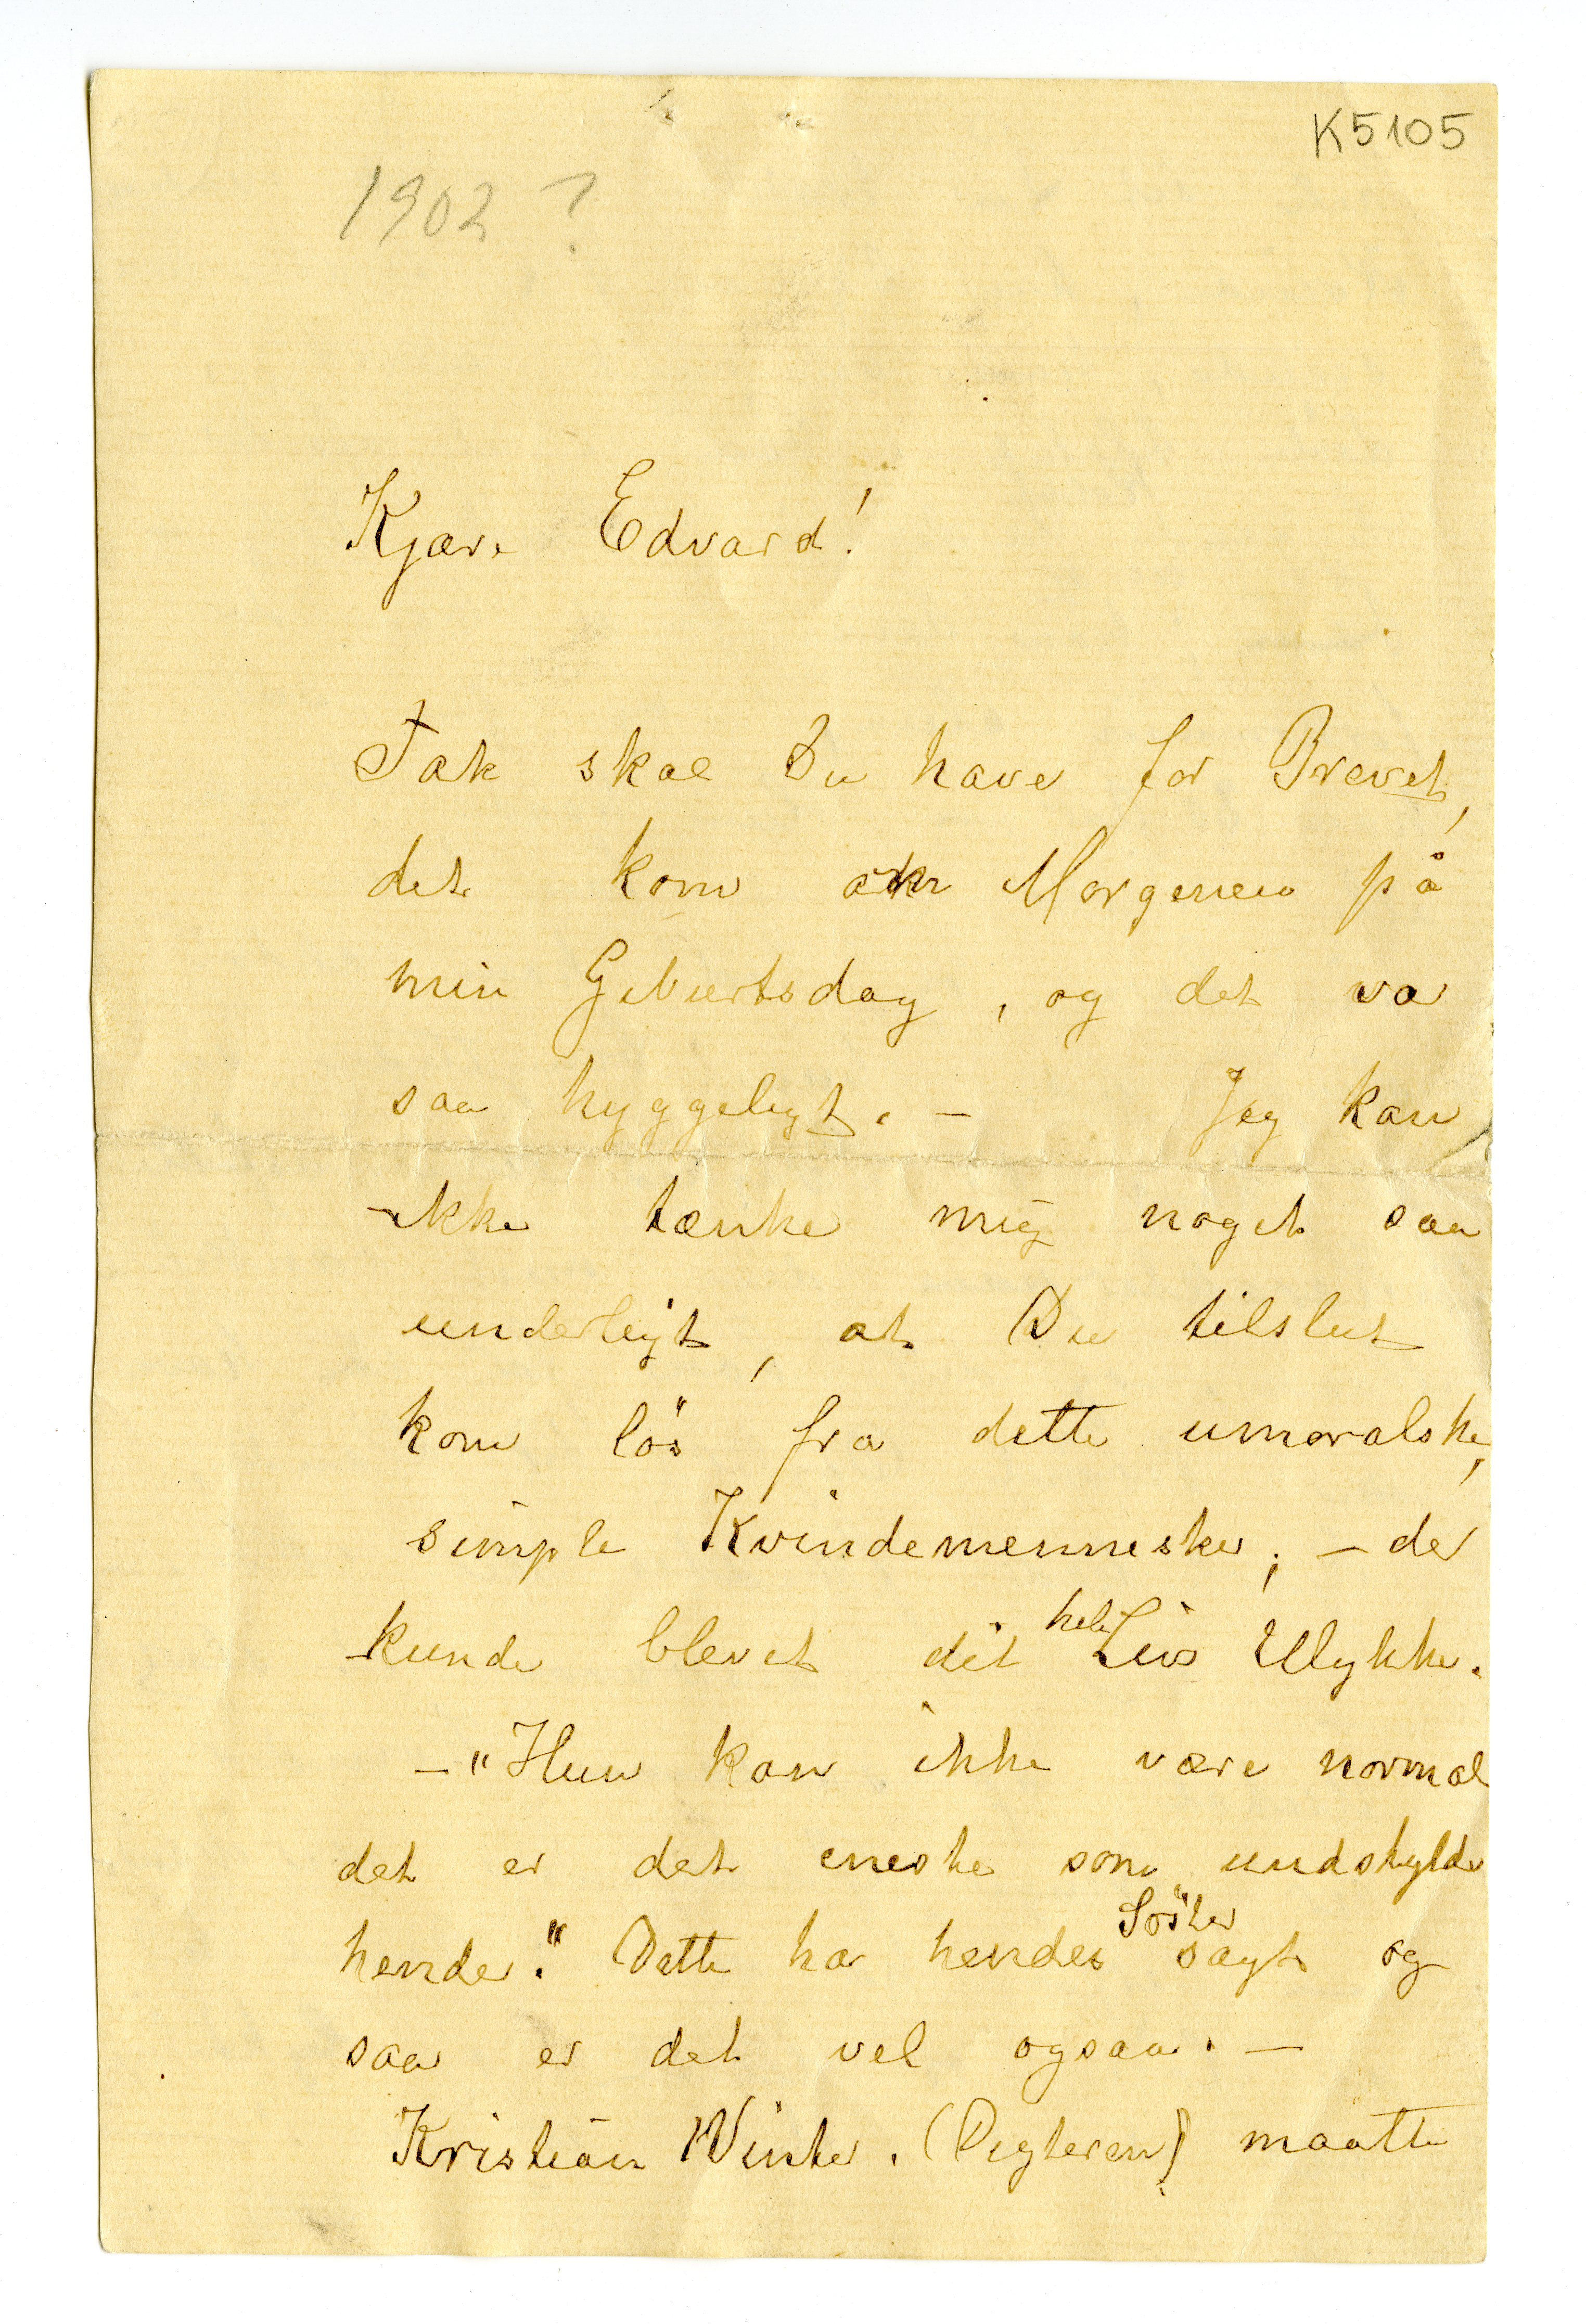 K5105
1902?
Kjære Edvard!
Tak skal Du have for Brevet,
det kom om Morgenen på
min Geburtsdag, og det var
saa hyggeligt. – Jeg kan
ikke tænke mig noget saa
underligt, at Du tilslut
kom lös fra dette umoralske,
simple Kvindemenneske, – der
kunde blevet dit hele Livs Ulykke.
– "Hun kan ikke være normal
det er det eneste som undskylder
hende." Dette har hendes Söster sagt og
saa er det vel ogsaa. –
Kristian Winter. (Digteren) maatte